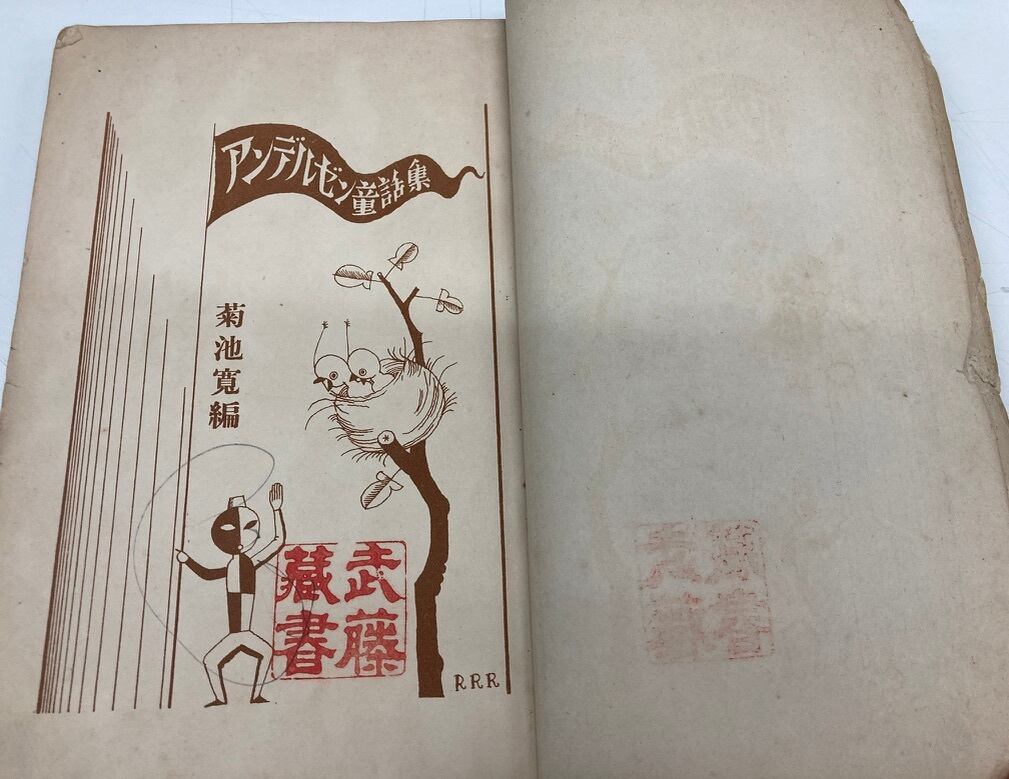 アンデルゼン童話集
菊池寛編
武藤
蔵書
RRR